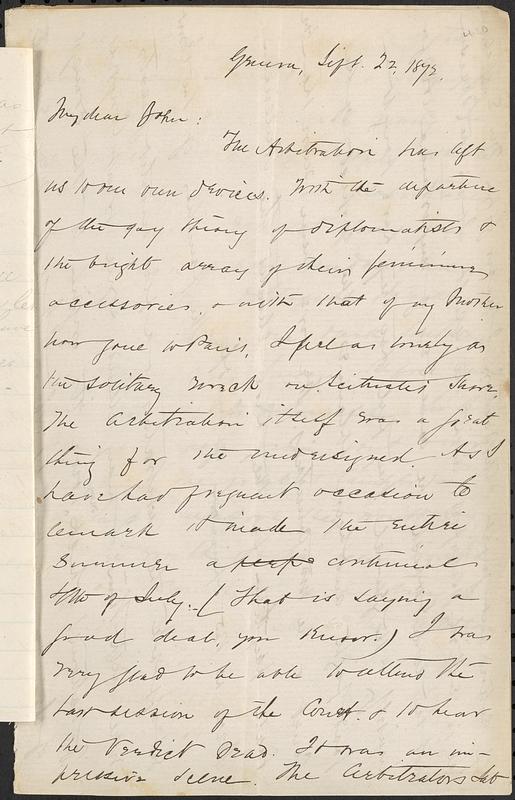 Geneva, Sept. 22, 1872.
My dear John:
The Arbitration has left
us to our own devices. With the departure
of the gay throng of diplomatists &
the bright array of their feminine
accessories, & with that of my Mother
now gone to Paris, I feel as lonely as
the solitary wreck on Scituate's Shore.
The Arbitration itself was a great
thing for the undersigned. As I
have had frequent occasion to
remark it made the entire
Summer a perp continual
4th of July. (That is saying a
good deal, you know.) I was
very glad to be able to attend the
last session of the Court. & to hear
the Verdict read. It was an im-
pressive scene. The Arbitrators sat